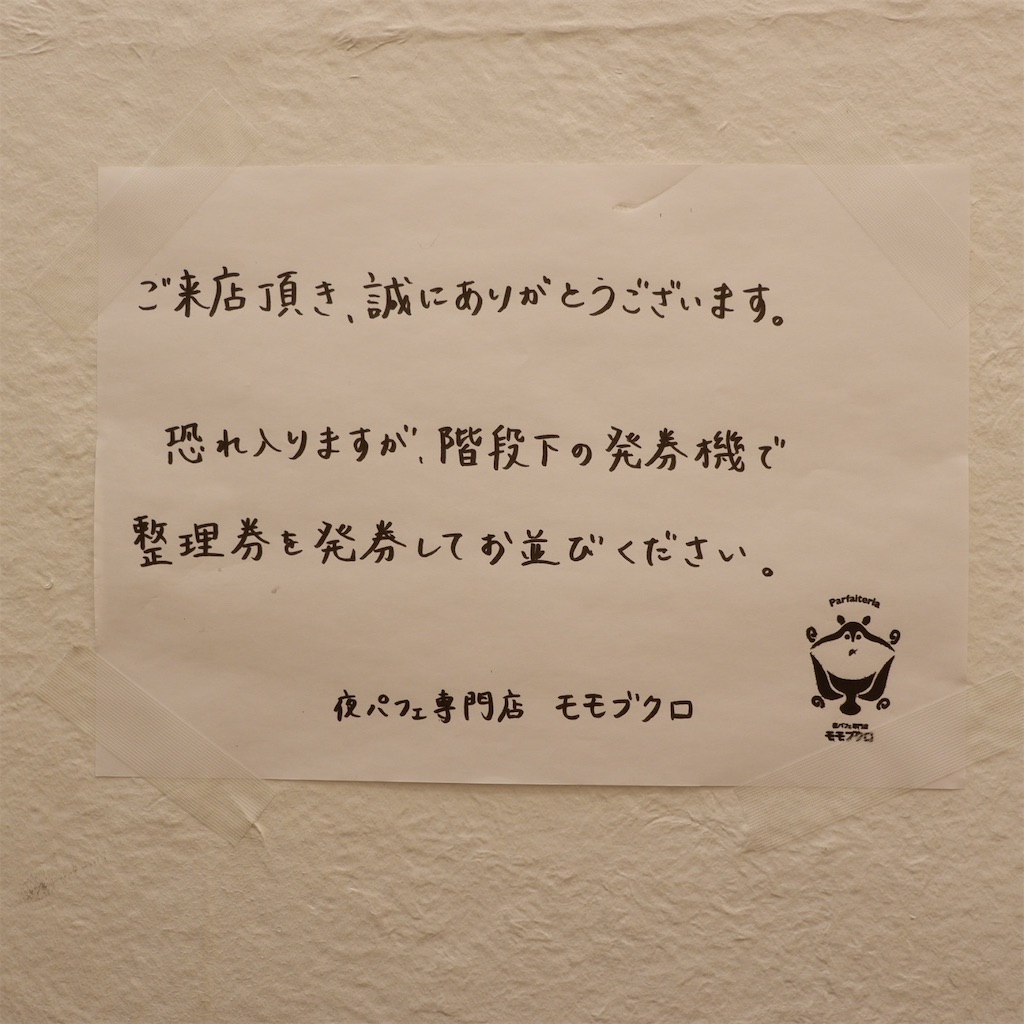 ご来店頂き、誠にありがとうございます。
恐れ入りますが、階段下の発券機で
整理券を発券してお並びください。
夜パフェ専門店 モモブクロ
Parfaiteria
夜パフェ専門店
モモブクロ